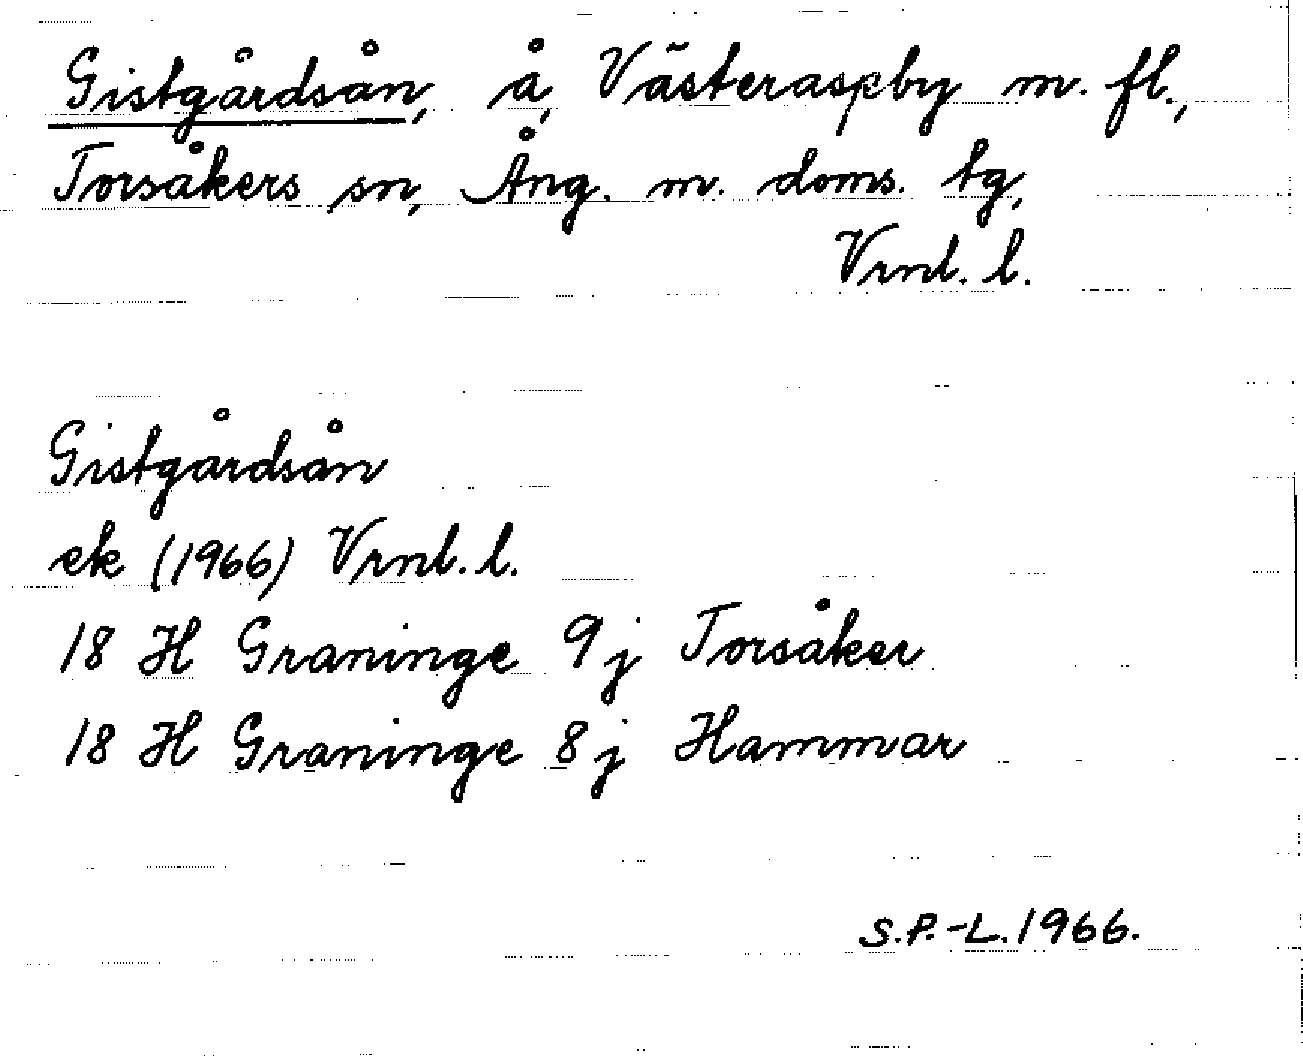 Gistgårdsån, å, Västeraspby m. fl.,
Torsåkers sn, Ång. m. doms. tg,
Vrnl. l.
Gistgårdsån
ek (1966) Vrnl. l.
18 H Graninge 9j Torsåker
18 H Graninge 8j Hammar
S.P.-L.1966.